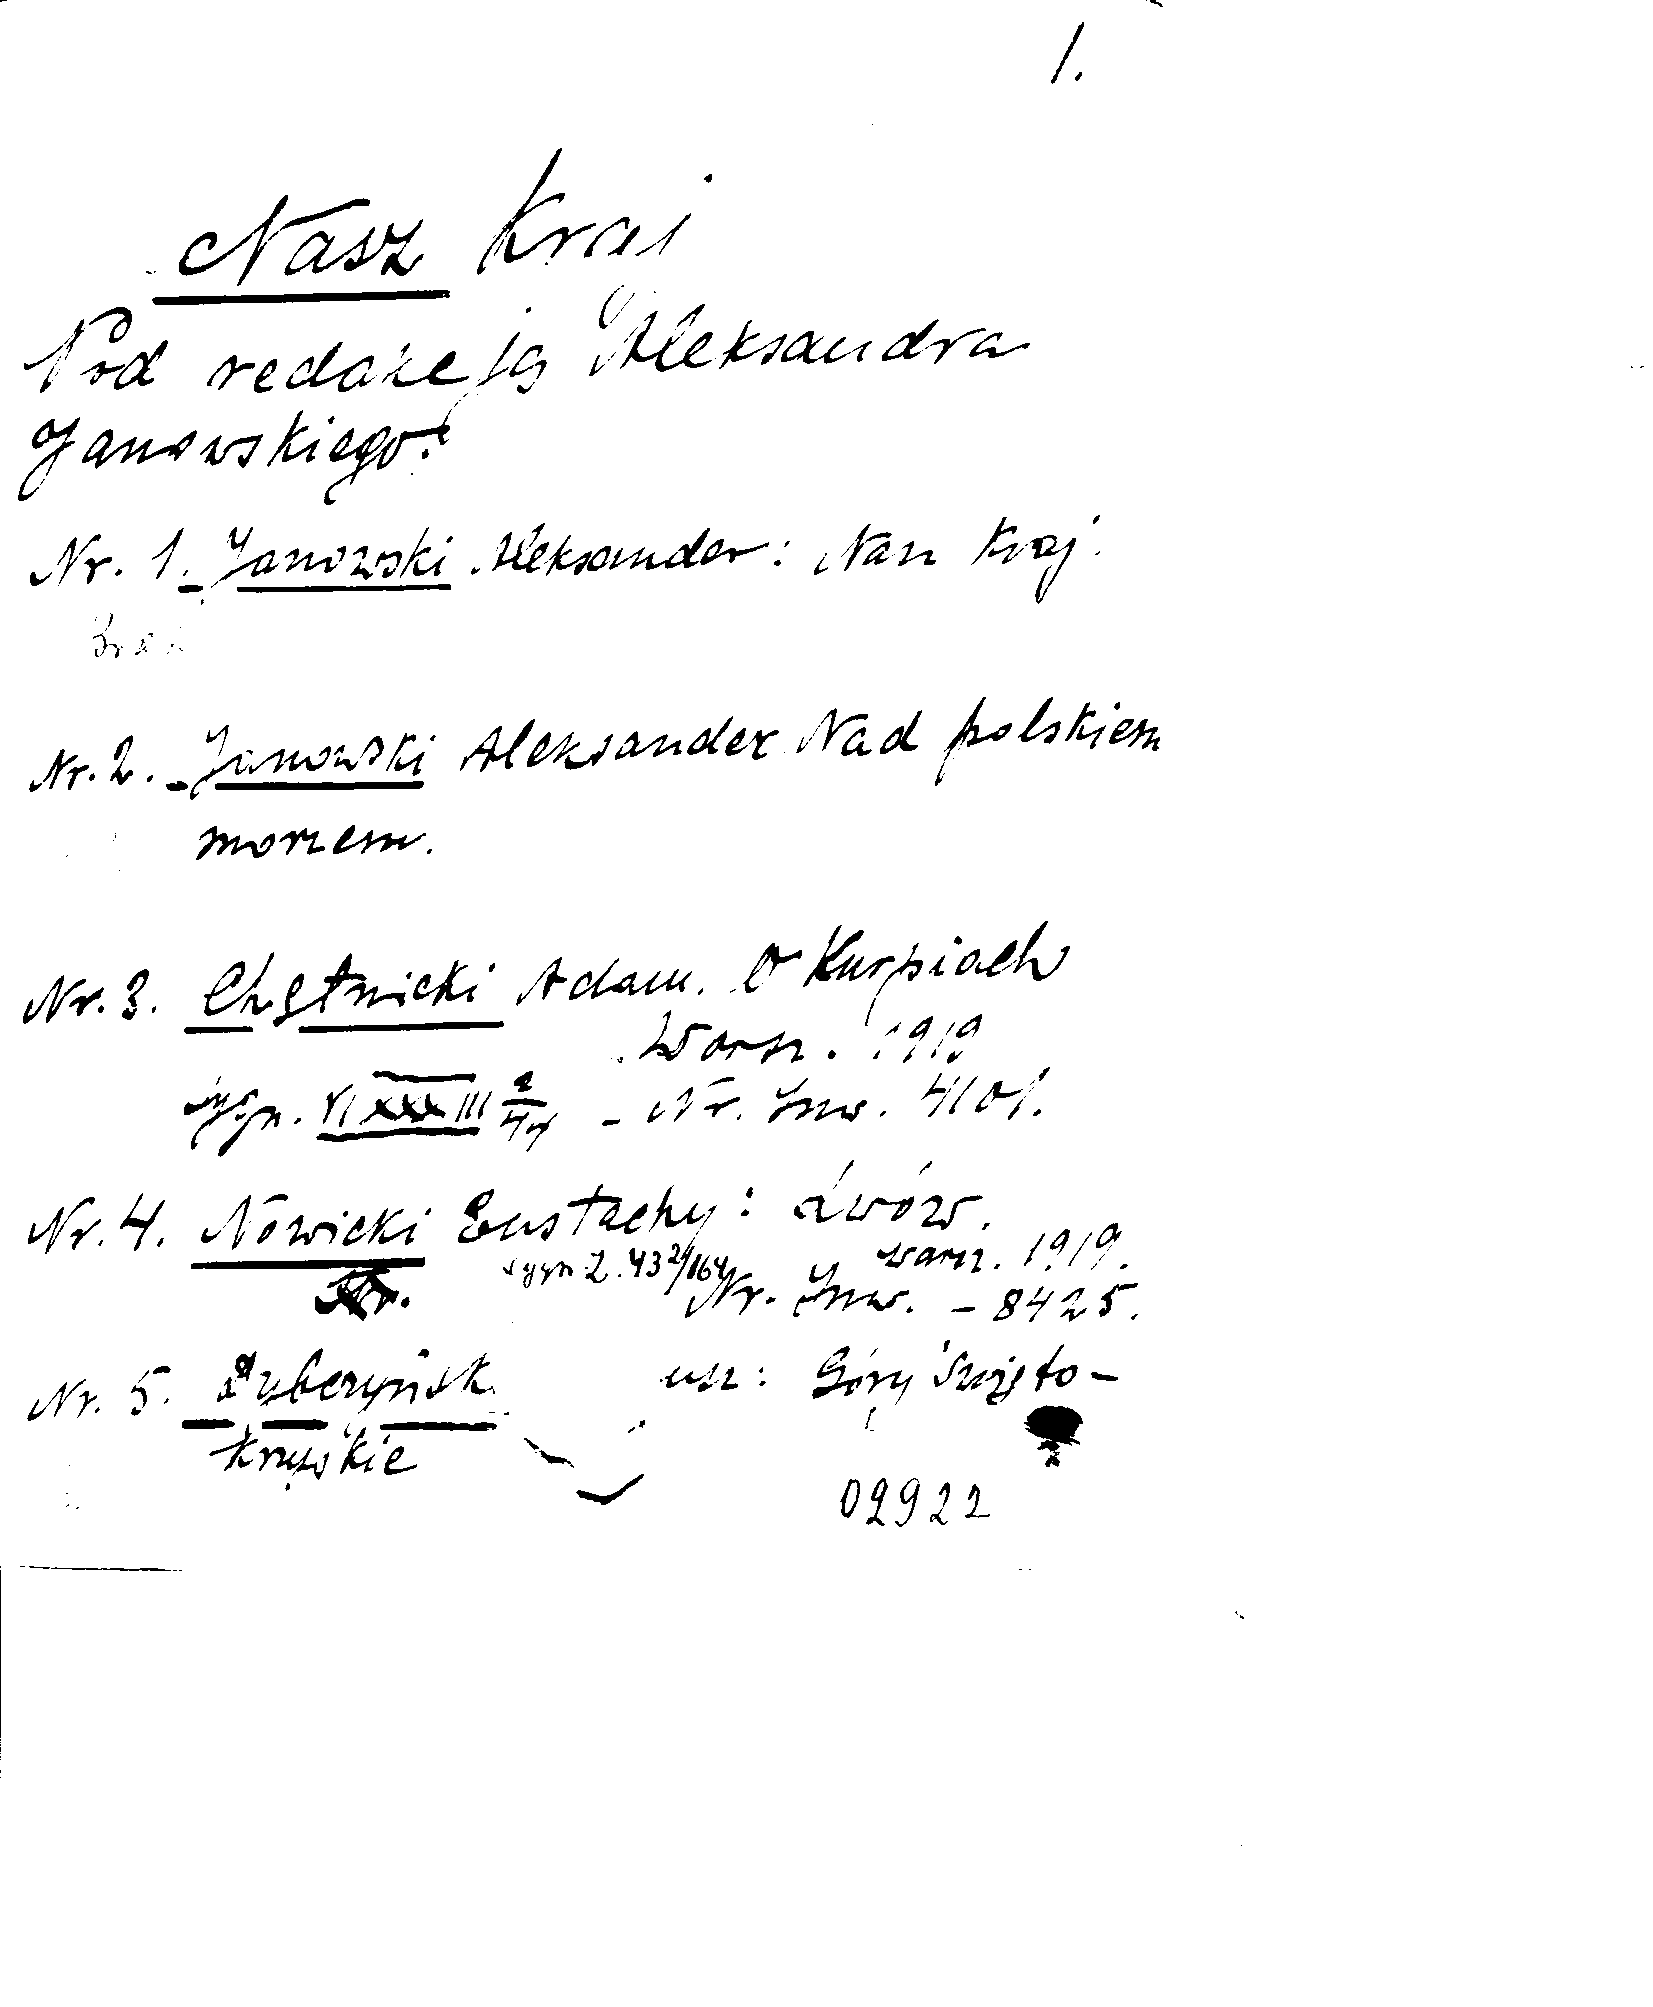 1.
Nasz Kraj
Pod redakcją Aleksandra
Janowskiego:
Nr. 1. Janowski Aleksander: Nasz Kraj.
Nr. 2. - Janowski Aleksander Nad polskiem
morzem.
Nr. 3. Chętnicki Adam. O Kurpiach
Warsz. 1919
sygn. VI XXXIII 2/44 - Nr. Inw. 4101.
Nr. 4. Nowicki Eustachy: Lwów.
warsz. 1919.
sygn Z. 43 Nr. Inw. - 8425.
Nr. 5. usz: Góry Święto-
krzyskie
02922